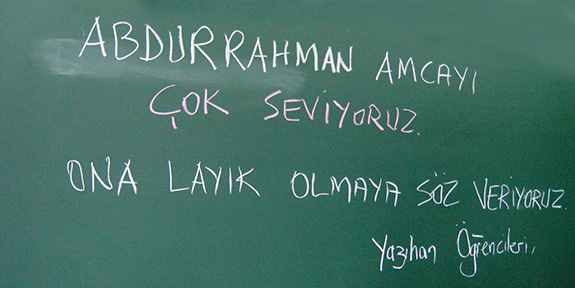 ABDURRAHMAN AMCAYI
ÇOK SEVİYORUZ.
ONA LAYIK OLMAYA SÖZ VERİYORUZ.
Yazıhan Öğrencileri,